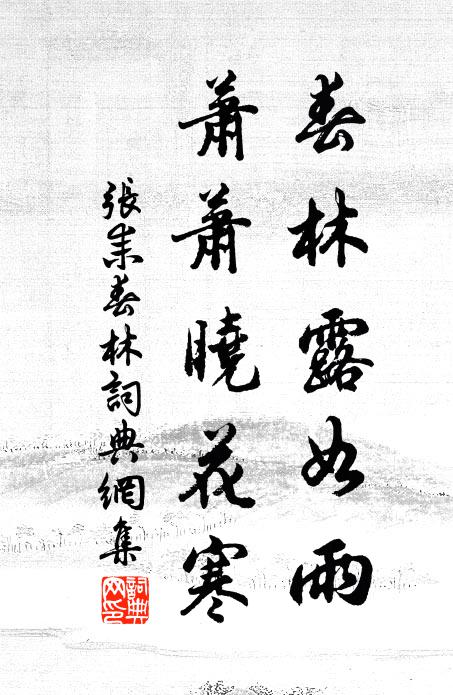 春林露如雨
蕭蕭曉花寒
張耒春林詞典網集
詞典
网印